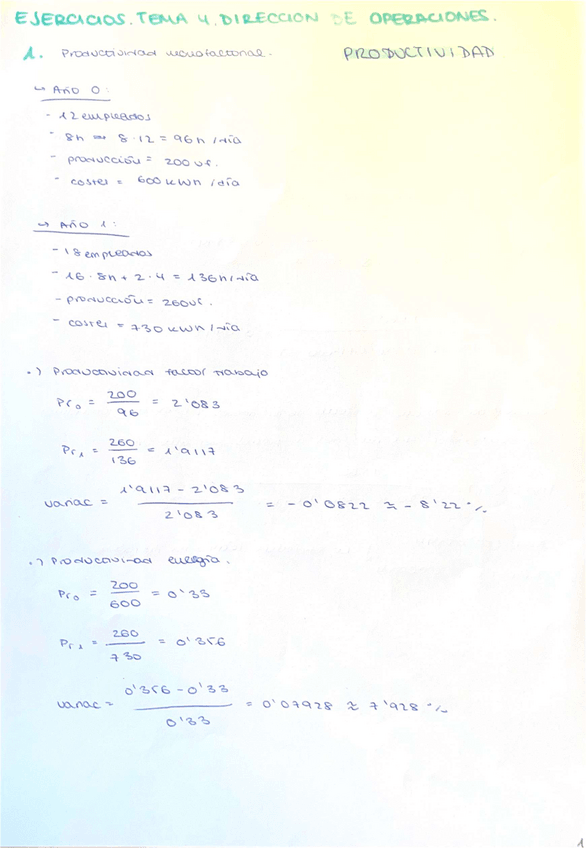 EJERCICIOS. TEMA 4. DIRECCION DE OPERACIONES.
1. Productividad monofactorial. PRODUCTIVIDAD
↳ AÑO 0:
- 12 empleados
- 8h → 8·12 = 96h/día
- producción = 200 uf.
- costes = 600 kWh/día
→ AÑO 1:
- 18 empleados
- 16·8h + 2·4 = 136h/día
- producción = 260uf.
- costes = 730 kWh/día
·) Productividad factor trabajo
Pr₀ = 200/96 = 2'083
Pr₁ = 260/136 = 1'9117
variac = (1'9117 - 2'083)/2'083 = -0'0822 ≃ -8'22%
·) Productividad energía.
Pr₀ = 200/600 = 0'33
Pr₁ = 260/730 = 0'356
variac = (0'356 - 0'33)/0'33 = 0'07928 ≃ 7'928%
1